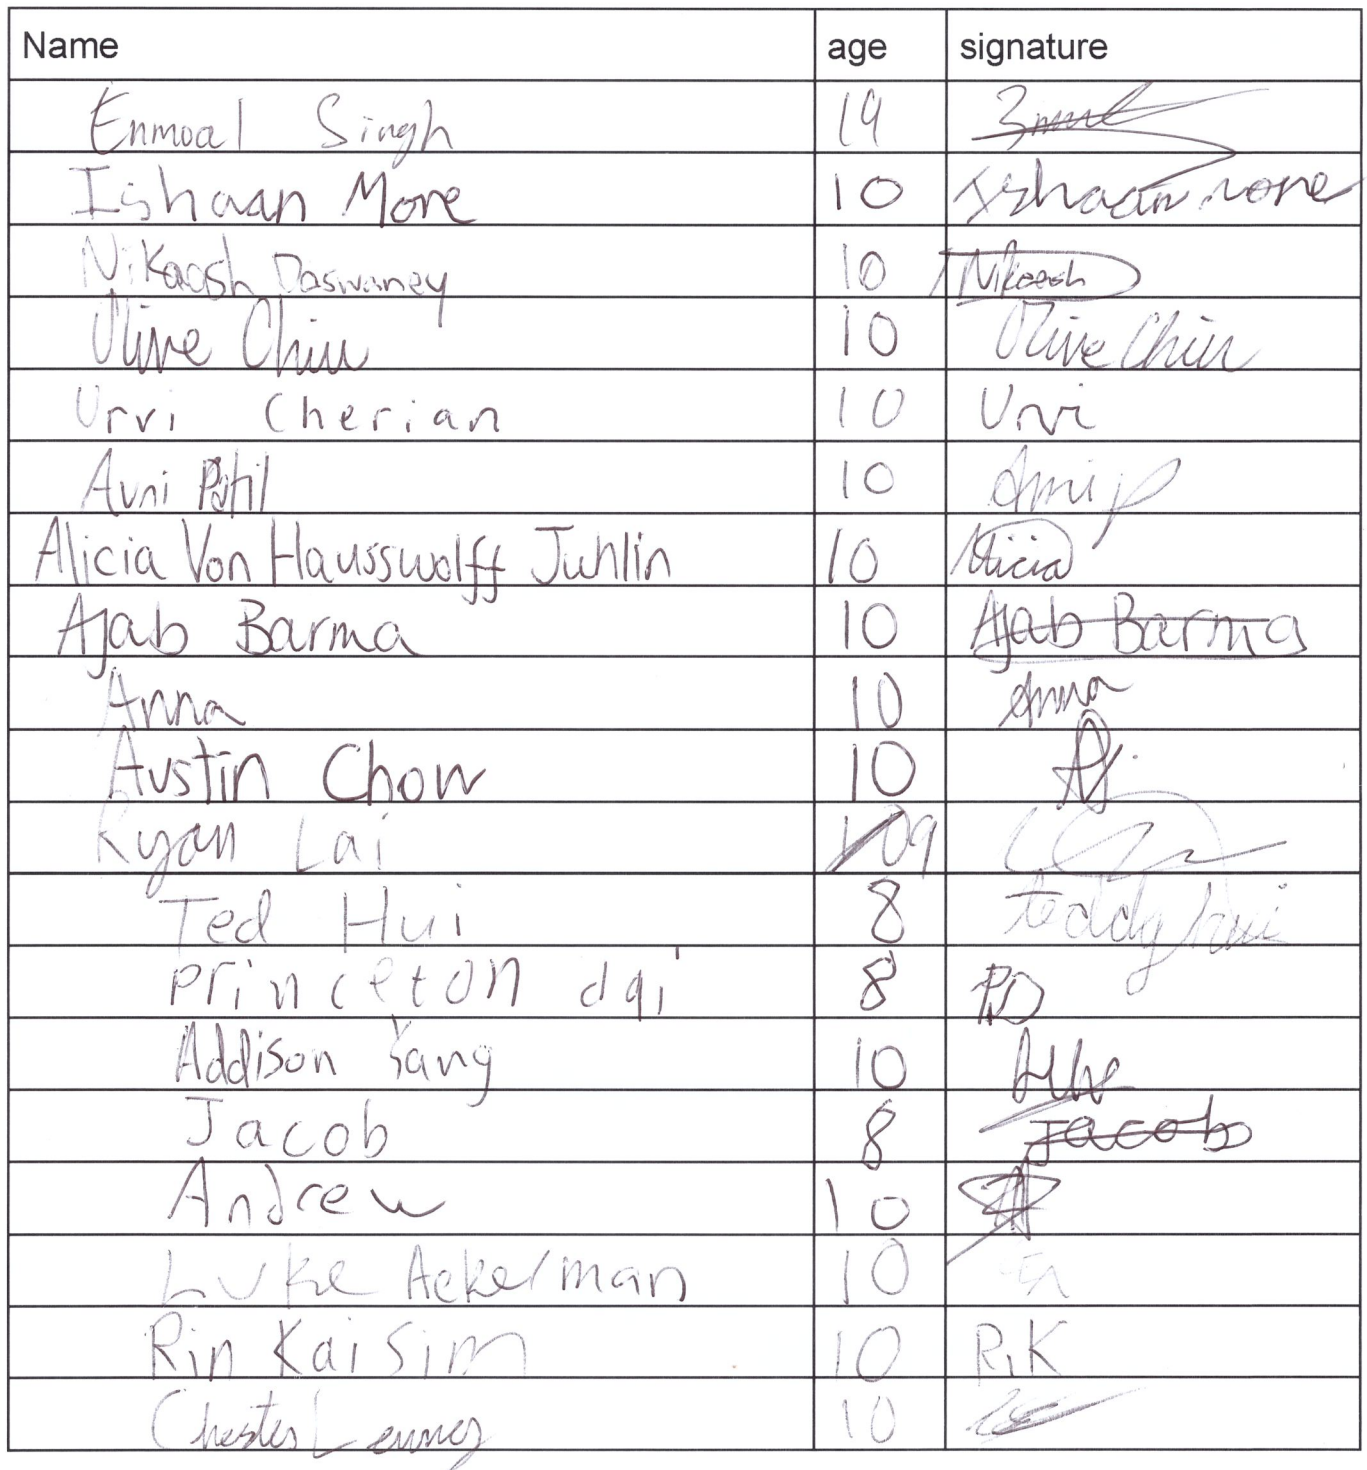 Name age signature
Enmoal Singh 19
Ishaan More 10 Ishaan more
Nikaash Daswaney 10 Nikaash
Olive Chiu 10 Olive Chiu
Urvi Cherian 10 Urvi
Avni Patil 10 Avni P
Alicia Von Hausswolff Juhlin 10 Alicia
Ajab Barma 10 Ajab Barma
Anna 10 Anna
Austin Chow 10
Ryan Lai 9
Ted Hui 8 teddy hui
Princeton dai 8 PD
Addison Yang 10
Jacob 8 Jacob
Andrew 10
Luke Ackerman 10
Rin Kai Sim 10 RiK
Chester Leung 10